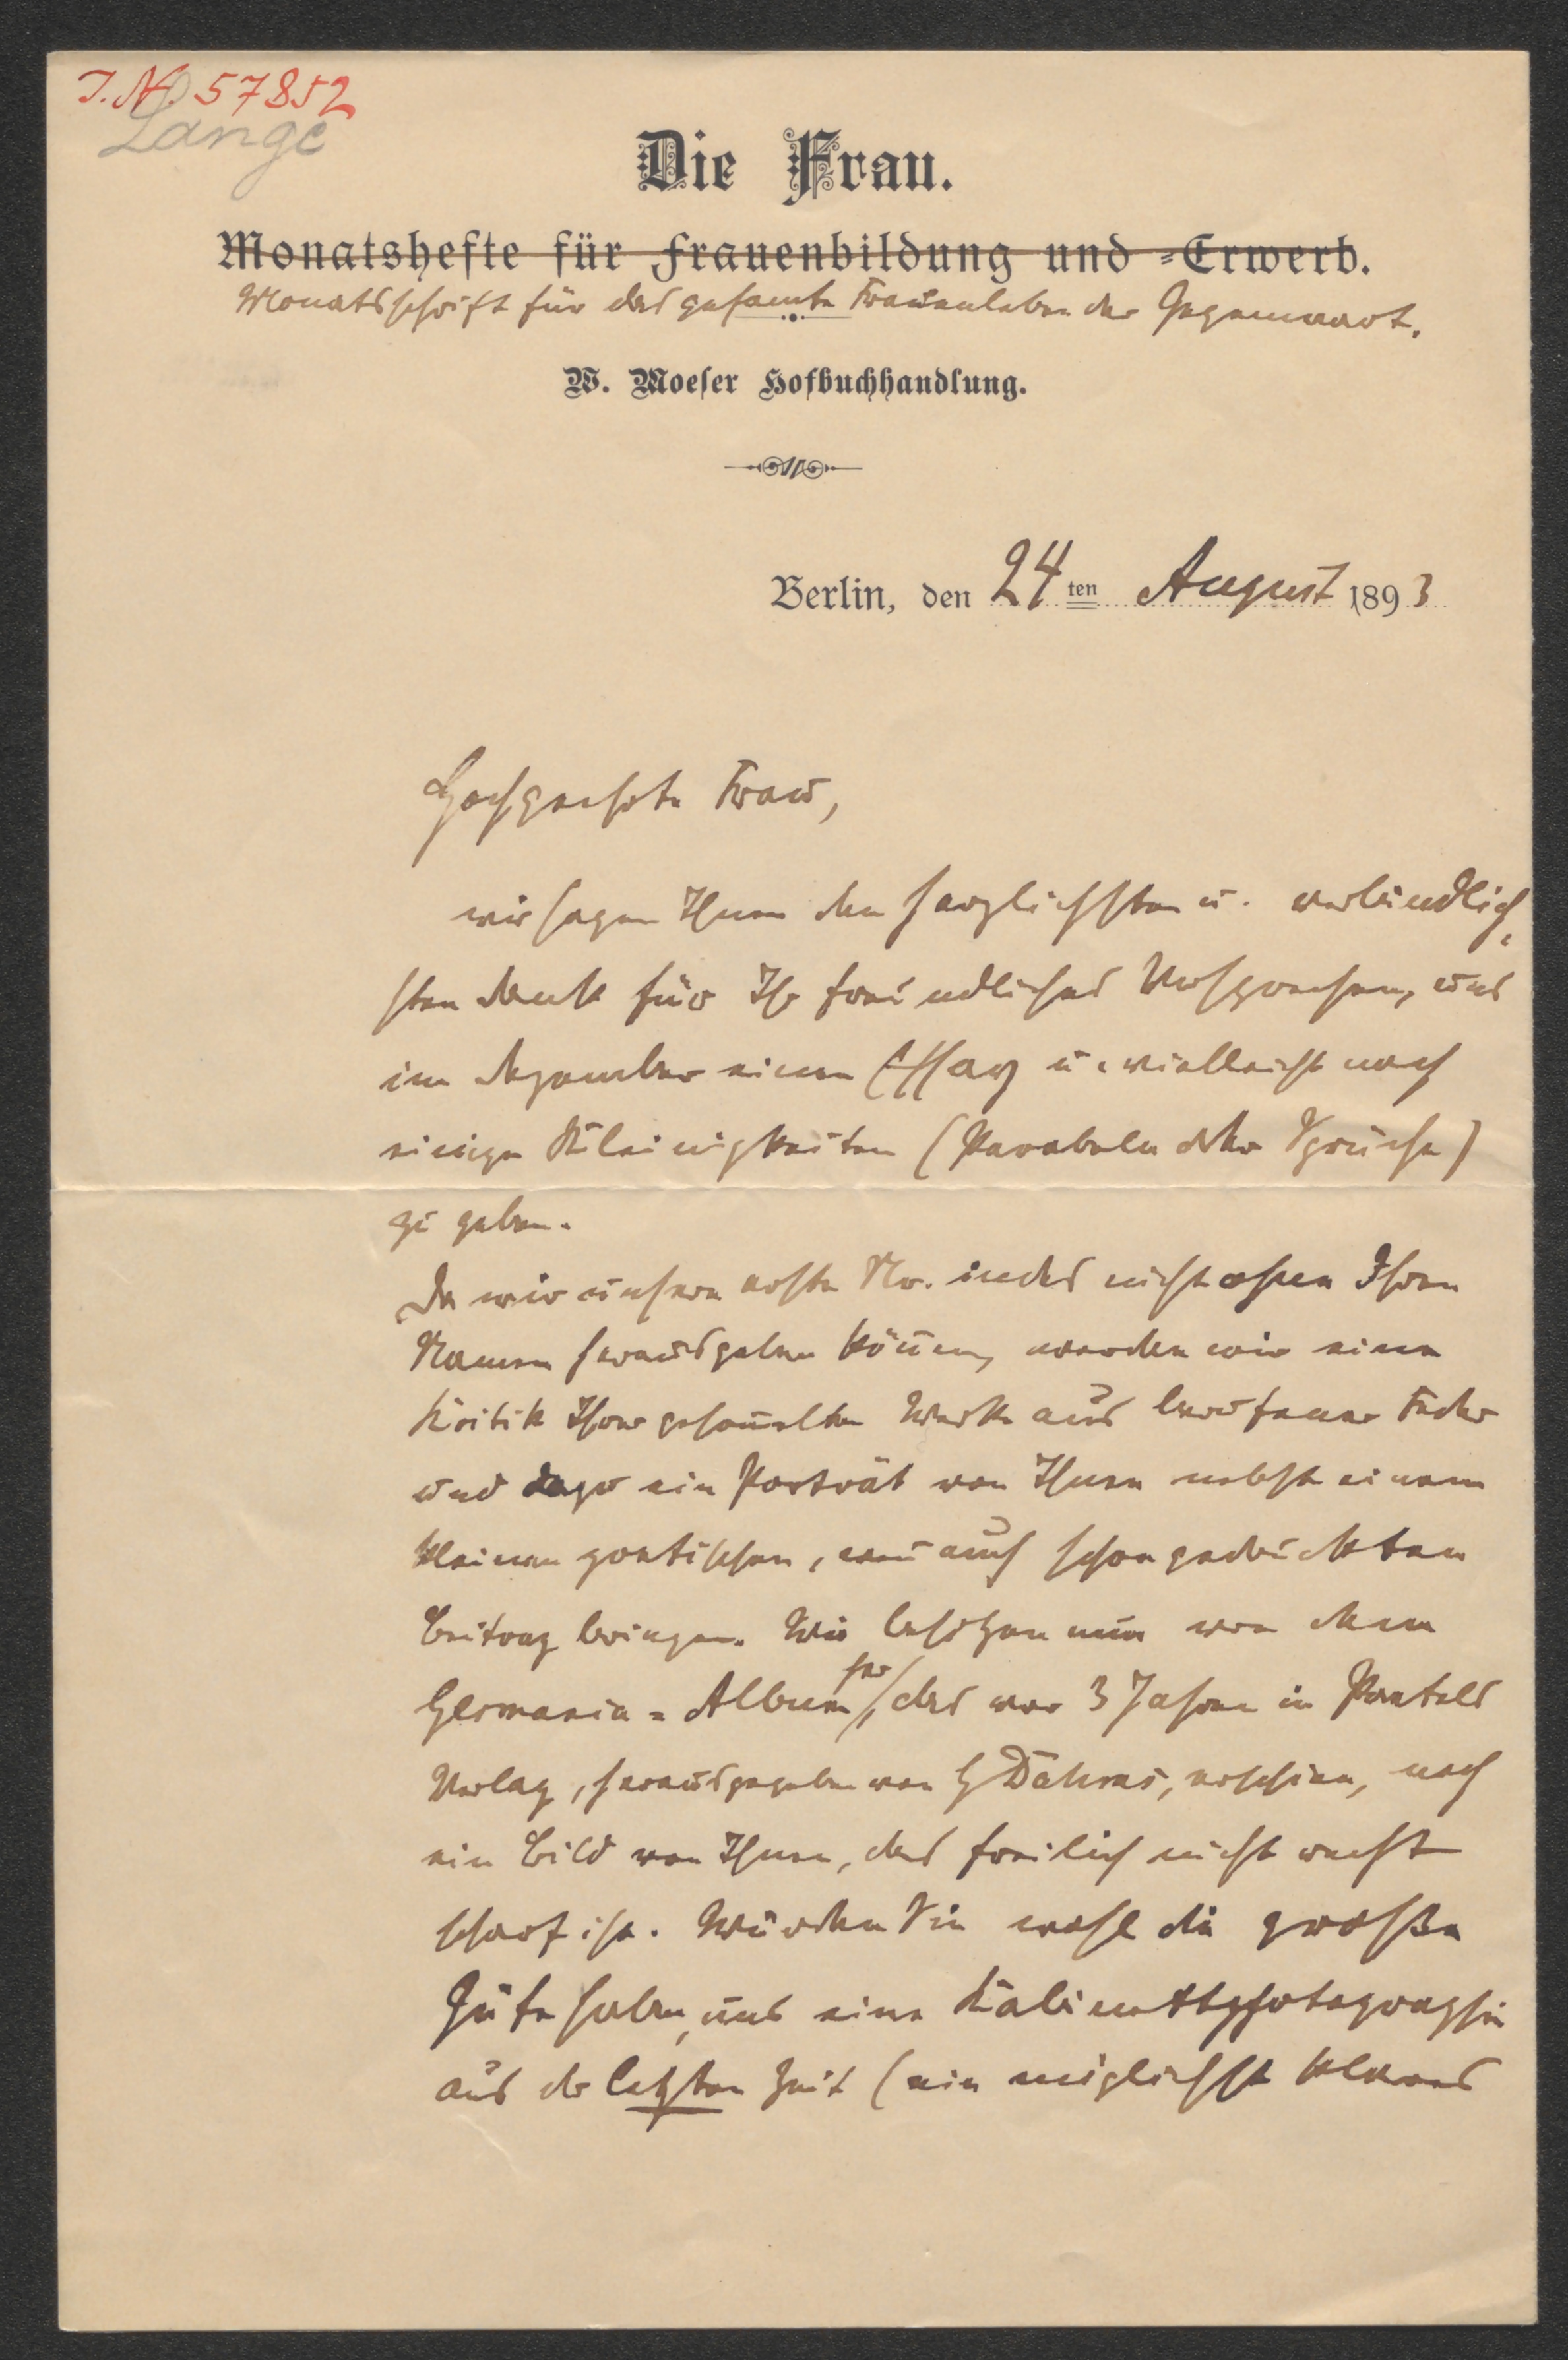 J. N. 57852
Lange
Die Frau.
Monatshefte für Frauenbildung und =Erwerb.
Monatsschrift für das gesamte Frauenleben der Gegenwart.
W. Moeser Hofbuchhandlung.
Berlin, den 24 ten August 1893
Hochgeehrte Frau,
wir sagen Ihnen den herzlichsten u. verbindlich¬
sten Dank für Ihr freundliches Versprechen, uns
im Dezember einen Essay u. vielleicht noch
einige Kleinigkeiten (Parabeln oder Sprüche)
zu geben.
Da wir unsere erste Nr. indes nicht ohne Ihren
Namen herausgeben können, werden wir eine
Kritik Ihrer gesam̅elten Werke aus berufener Feder
und dazu ein Porträt von Ihnen nebst einem
kleinen poetischen, wen̅ auch schon gedruckten
Beitrag bringen. Wir besitzen nun von dem
Germania=Album her, das vor 3 Jahren in Pantels
Verlag, herausgegeben von G Dahms, erschien, noch
ein Bild von Ihnen, das freilich nicht recht
scharf ist. Würden Sie wohl die große
Güte haben, uns eine Kabinettphotographie
aus der letzten Zeit (ein möglichst klares